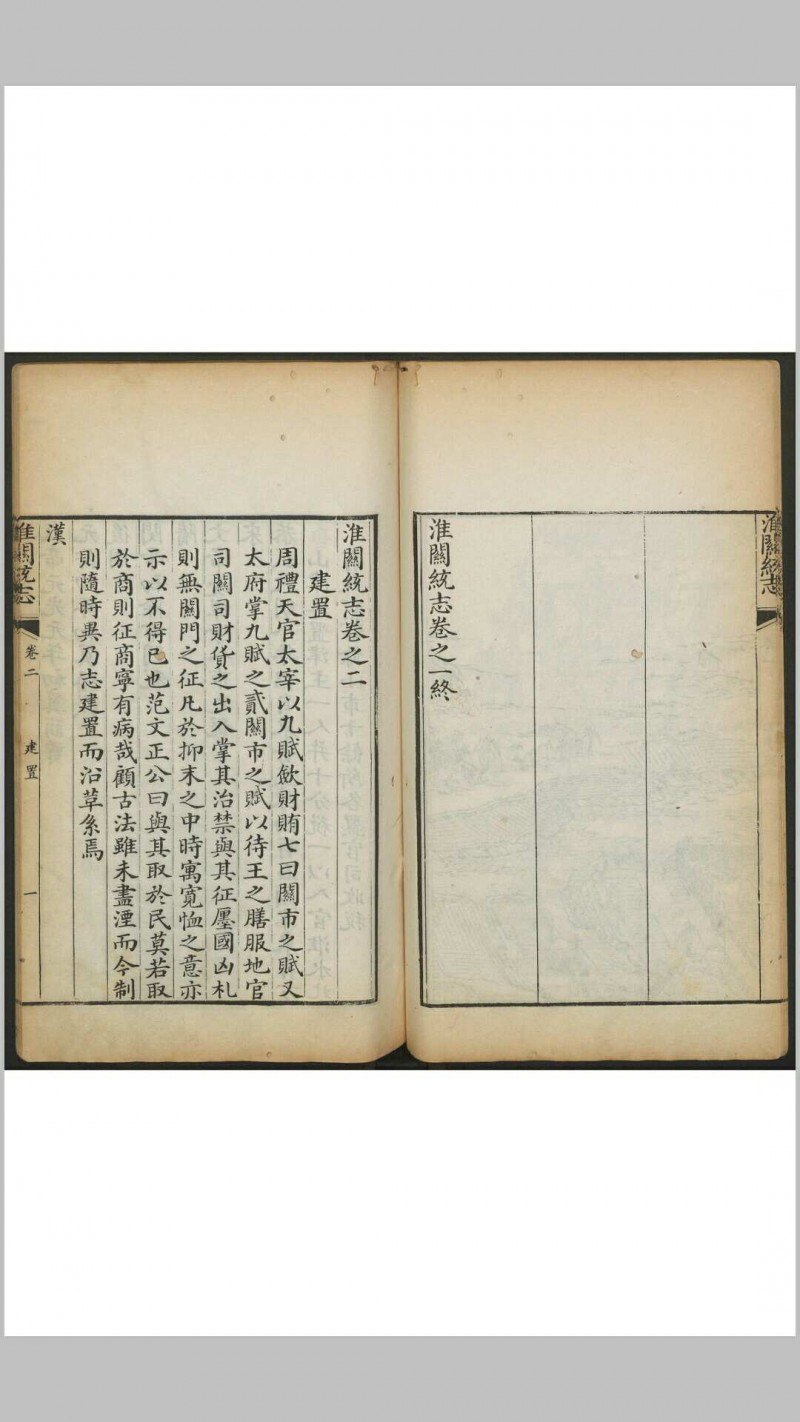 淮關統志
淮關統志卷之一終
淮關統志卷之二
建置
周禮天官太宰以九賦斂財賄七曰關市之賦又
太府掌九賦之貳關市之賦以待王之膳服地官
司關司財貨之出入掌其治禁與其征廛國凶札
則無關門之征凡於抑末之中時寓寬恤之意亦
示以不得已也范文正公曰與其取於民莫若取
於商則征商寧有病哉顧古法雖未盡湮而今制
則隨時異乃志建置而沿革系焉
漢
淮關統志
卷二
建置
一